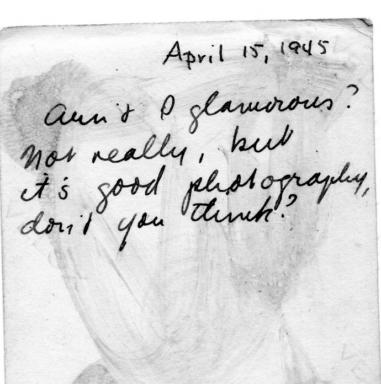 April 15, 1945
Ain't I glamorous?
Not really, but
it's good photography,
don't you think?